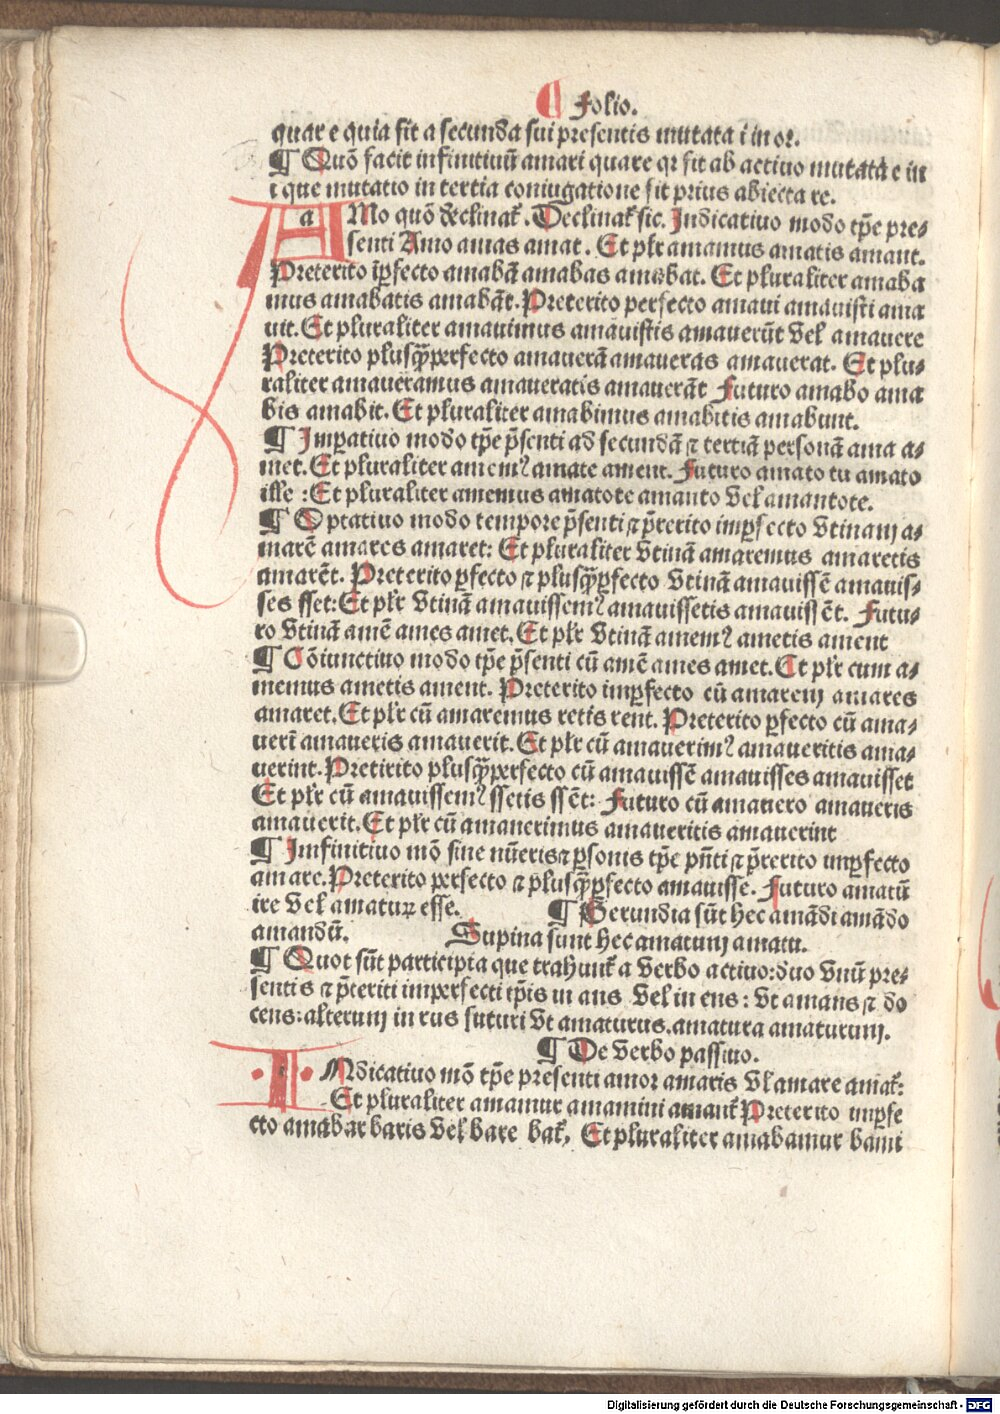 ¶ Folio.
quare quia fit a secunda sui presentis mutata i in or.
¶ Quō facit infinitiuū amari quare qr fit ab actiuo mutata e in
i que mutatio in tertia coniugatione fit prius abiecta re.
AMo quō declinat᷑. Declinat᷑ sic. Indicatiuo modo tp̄e pre⸗
senti Amo amas amat. Et plr̄ amamus amatis amant.
Preterito īꝑfecto amabā amabas amabat. Et pluraliter amaba
mus amabatis amabāt. Preterito perfecto amaui amauisti ama
uit. Et pluraliter amauimus amauistis amauerūt vel amauere
Preterito plusq̄ꝑerfecto amauerā amaueras amauerat. Et plu⸗
raliter amaueramus amaueratis amauerāt Futuro amabo ama
bis amabit. Et pluraliter amabimus amabitis amabunt.
¶ Imꝑatiuo modo tp̄e p̄senti ad secundā ⁊ tertiā personā ama a⸗
met. Et pluraliter amemꝰ amate ament. Futuro amato tu amato
ille : Et pluraliter amemus amatote amanto vel amantote.
¶ Optatiuo modo tempore p̄senti ⁊ p̄terito imꝑfecto vtinam a⸗
marē amares amaret: Et pluraliter vtinā amaremus amaretis
amarēt. Preterito ꝑfecto ⁊ plusq̄ꝑfecto vtinā amauissē amauis⸗
ses sset: Et plr̄ vtinā amauissemꝰ amauissetis amauissēt. Futu⸗
ro vtinā amē ames amet. Et plr̄ vtinā amemꝰ ametis ament
¶ Cōiunctiuo modo tp̄e p̄senti cū amē ames amet. Et plr̄ cum a⸗
memus ametis ament. Preterito imꝑfecto cū amarem amares
amaret. Et plr̄ cū amaremus retis rent. Preterito ꝑfecto cū ama⸗
uerī amaueris amauerit. Et plr̄ cū amauerimꝰ amaueritis ama⸗
uerint. Pretirito plusq̄ꝑerfecto cū amauissē amauisses amauisset
Et plr̄ cū amauissemꝰ ssetis ssēt: Futuro cū amauero amaueris
amauerit. Et plr̄ cū amauerimus amaueritis amauerint
¶ Imfinitiuo mō sine nūeris ⁊ ꝑsonis tp̄e pn̄ti ⁊ p̄terito imꝑfecto
amare. Preterito perfecto ⁊ plusq̄ꝑfecto amauisse. Futuro amatū
ire vel amaturꝫ esse. ¶ Gerundia sūt hec amādi amādo
amandū. Supina sunt hec amatum amatu.
¶ Quot sūt participia que trahunt᷑ a verbo actiuo: duo vnū pre⸗
sentis ⁊ p̄teriti imperfecti tp̄is in ans vel in ens: vt amans ⁊ do
cens: alterum in rus futuri vt amaturus. amatura amaturum.
¶ De verbo passiuo.
INdicatiuo mō tp̄e presenti amor amaris vl̄ amare amat᷑:
Et pluraliter amamur amamini amant᷑ Preterito imꝑfe
cto amabar baris vel bare bat᷑, Et pluraliter amabamur bami
Digitalisierung gefördert durch die Deutsche Forschungsgemeinschaft - DFG